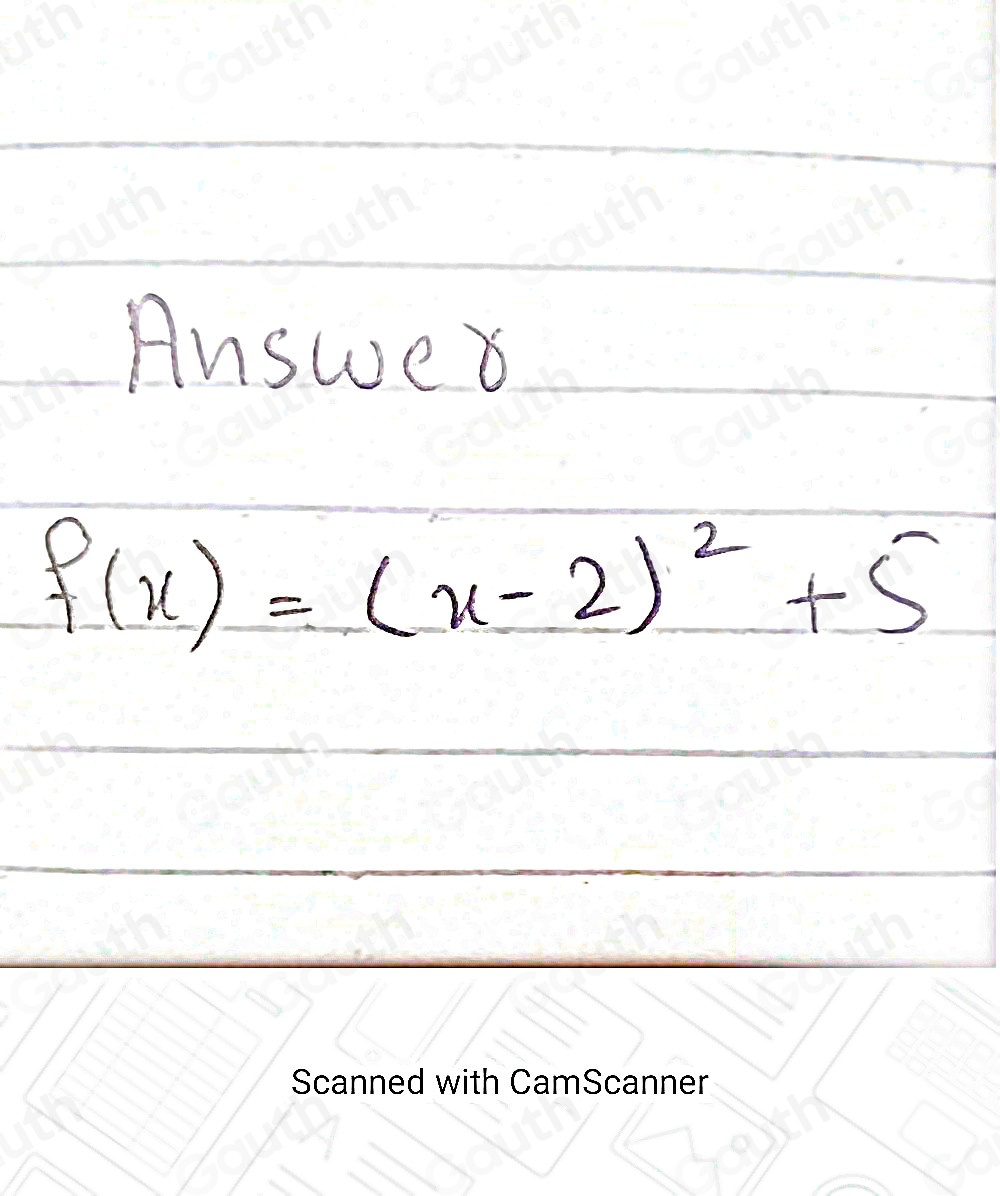 Answer
f(x) = (x-2)² + 5
Scanned with CamScanner
Gauth